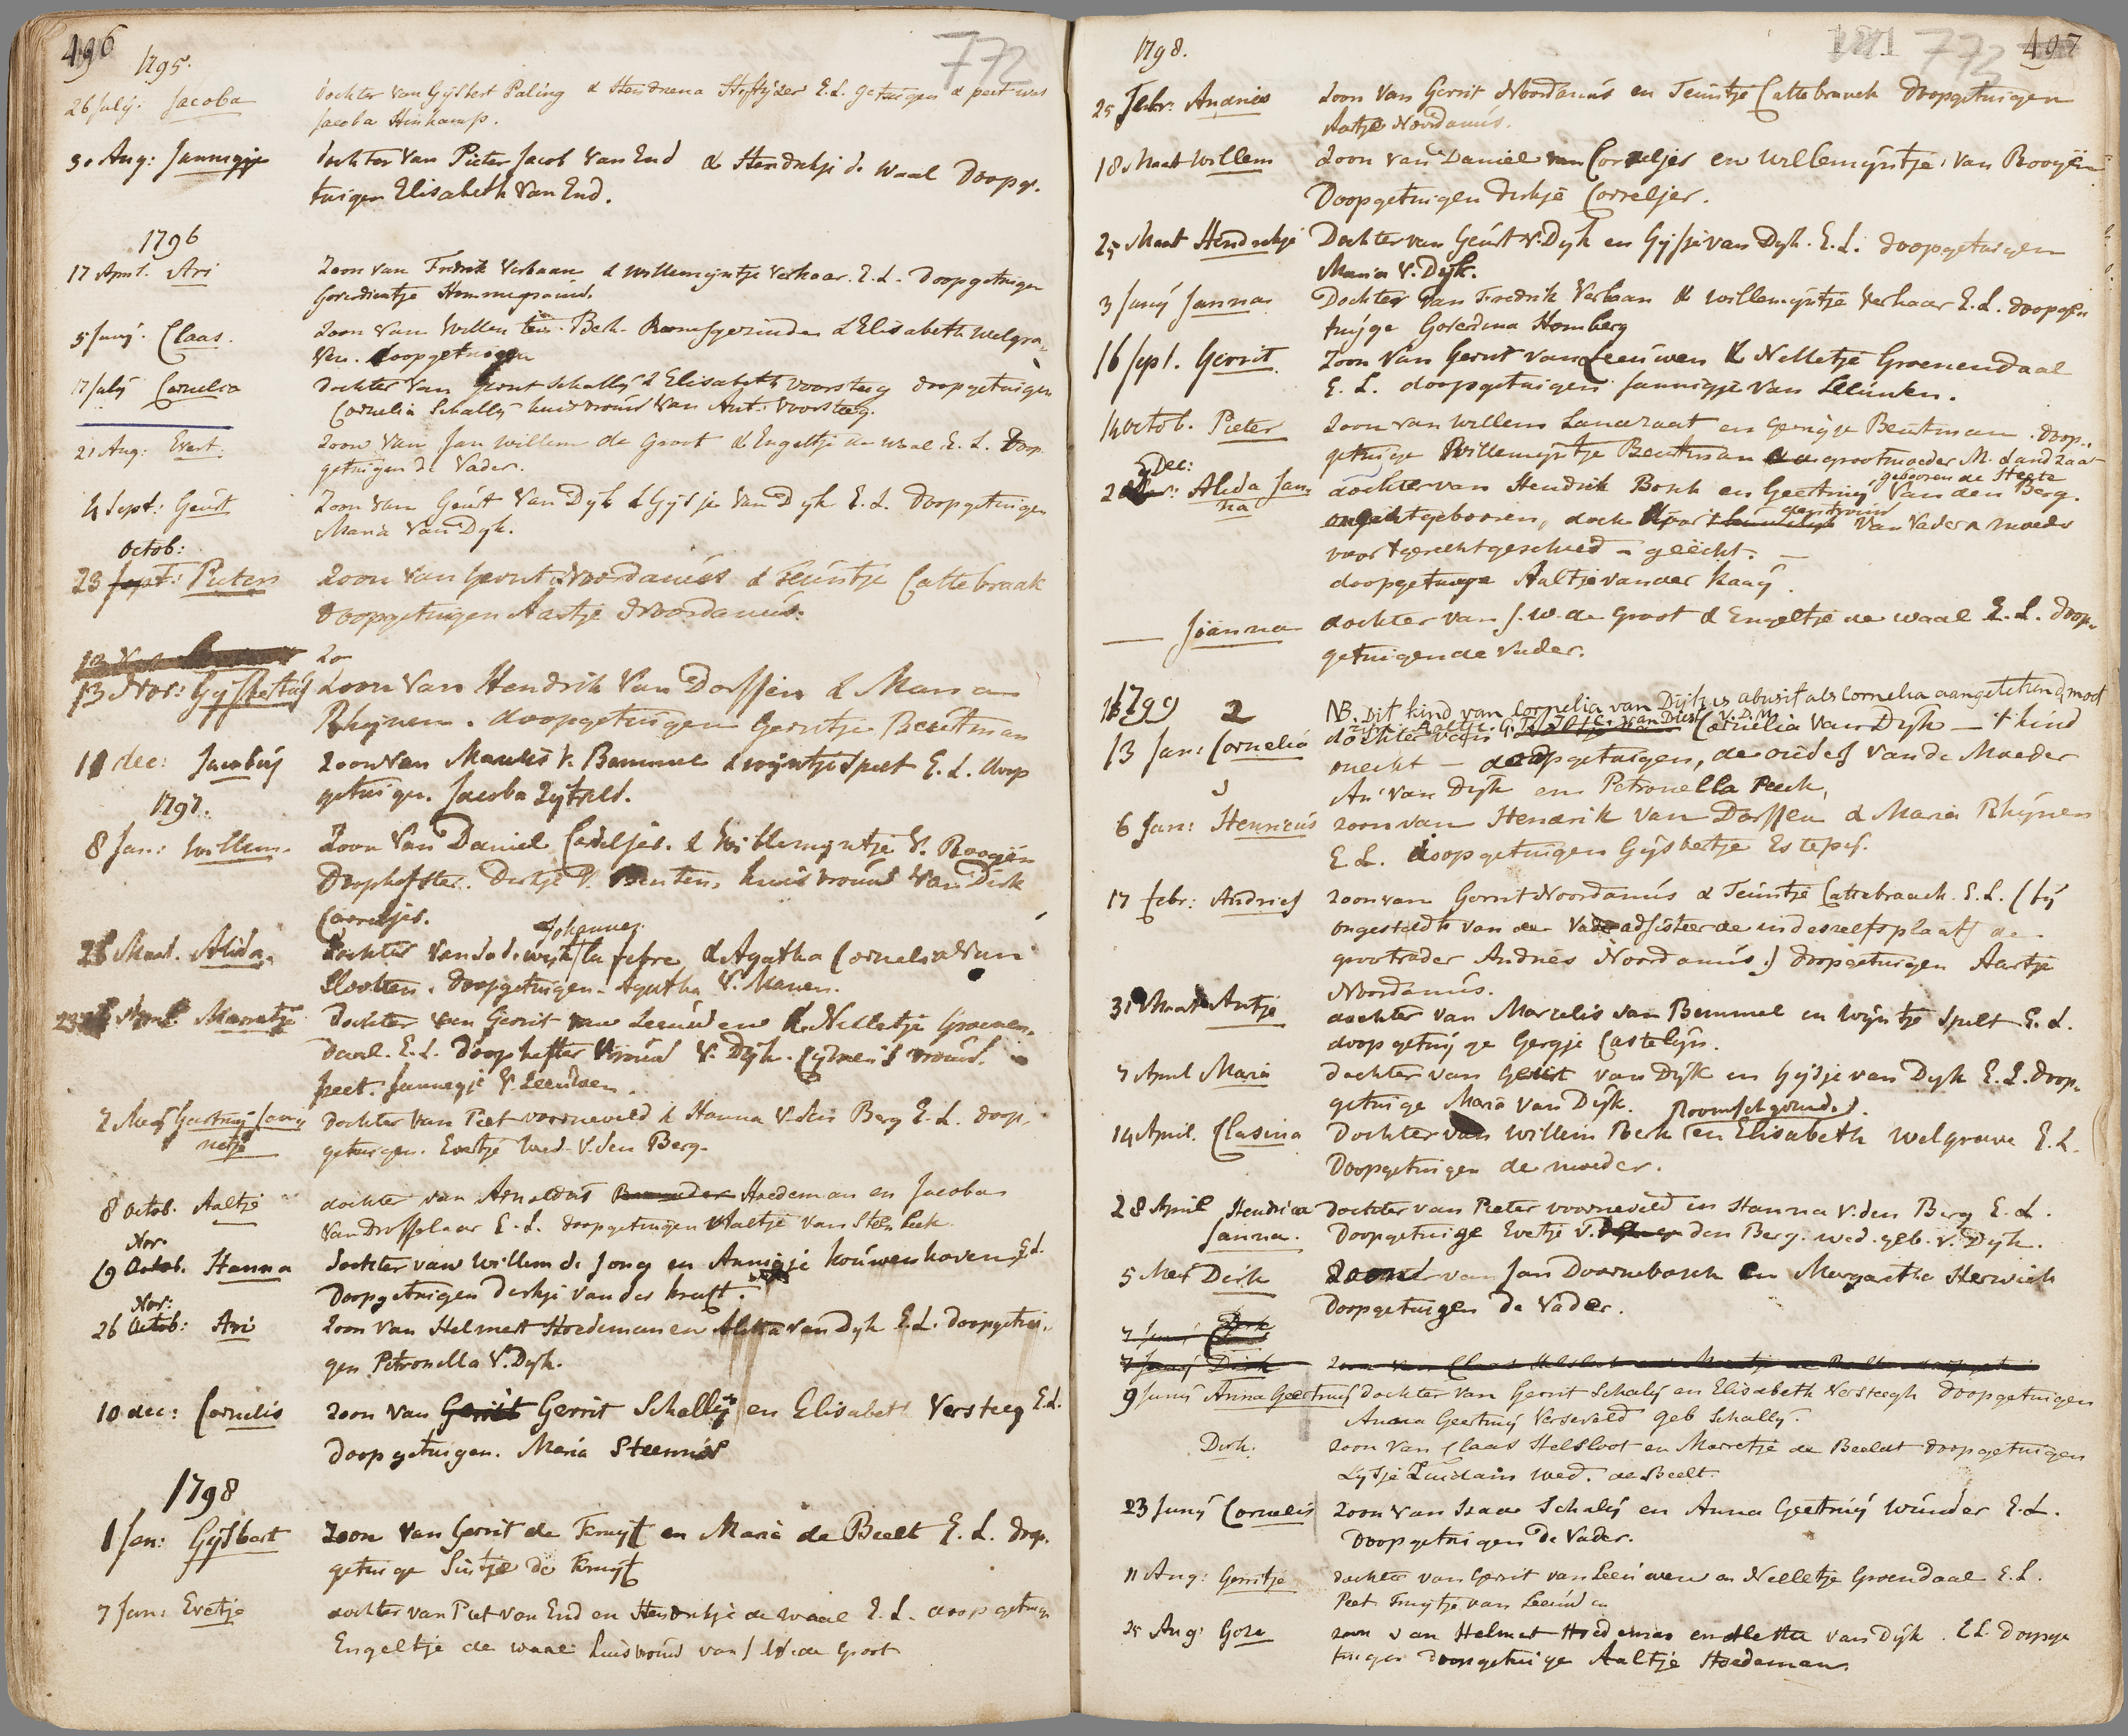 496
772
1795.
26 July. Jacoba dochter van Gysbert Paling & Hendrena E.L. getuigen & peet was
Jacoba Hinkamp.
30 Aug: Jannigje dochter Van Pieter Jacob Van End & Hendrikje de Waal Doopge-
tuigen Elisabeth Van End.
1796
17 April. Ari Zoon van Fredrik Verbaan & Willemyntje Verhaar. E.L. Doopgetuigen
5 Juny. Claas. zoon van Willem Berk Roomsgezinde & Elisabeth Welgra-
ven. doopgetuigen
17 July Cornelia dochter Van Gerrit Schally & Elisabeth Voorsteeg doopgetuigen
Cornelia Schally huisvrouw van Ant: Voorsteeg.
21 Aug: Evert. zoon van Jan Willem de Groot & Engeltje de Waal E.L. Doop-
getuigen de Vader.
4 Sept: Geurt Zoon van Geurt Van Dyk & Gysje Van Dyk E.L. Doopgetuigen
Maria Van Dyk.
Octob:
23 Sept: Pieter zoon van Gerrit Noordanus & Teuntje Cattebraak
Doopgetuigen Aartje Noordanus.
13 Nov:
13 Nov: Gysbertus zoon Van Hendrik Van Dorssen & Maria
Rhynen. doopgetuigen Gerritje Beutman
11 dec: Jacobus zoon van Marcelis V. Bemmel & Wyntje Spelt E.L. doop
getuigen. Jacoba Zytveld.
1797.
8 Jan: Willem. Zoon Van Daniel Correljes. & Willemyntje V. Rooyen
Doophefster. Dirkje V. Benten, huisvrouw van Dirk
Correljes.
Johannes
26 Maart. Alida. dochter van Lodewyk la febre & Agatha Cornelia Van
Slooten. doopgetuigen Agatha V. Manen.
23 April Marretje Dochter van Gerrit van Leeuwen & Nelletje Groenen-
daal. E.L. doophefster Vrouw V. Dyk. vrouw.
peet. Jannegje V. Leeuwen
7 Mey Geertruy Jann
netje Dochter van Piet voorneveld & Hanna V. den Berg E.L. doop-
getuigen. Evertje Wed. V. den Berg.
8 Octob. Aaltje dochter van Arnoldus Hoedeman en Jacoba
Van Drosselaar E.L. doopgetuigen Aaltje van Steenbeek
Nov.
19 Octob. Hanna dochter van Willem de Jong en Annigje Kouwenhoven E.L.
Doopgetuigen Dirkje van der kruft.
Nov:
26 Octob: Ari zoon van Helmert Hoedeman en Aletta van Dyk E.L. doopgetui-
gen Petronella V. Dyk.
10 dec: Cornelis zoon van Gerrit Gerrit Schally en Elisabeth Versteeg E.L.
doopgetuigen. Maria Steenis
1798
1 Jan: Gysbert zoon van Gerrit de Kruyf en Maria de Beelt E.L. doop.
getuige Sintje de Kruyf
7 Jan: Evertje dochter van Piet van End en Hendrikje de Waal E.L. doopgetuige
Engeltje de Waal huisvrouw van J W. de Groot
497
773
1798.
25 Febr: Andries Zoon van Gerrit Noordanus en Teuntje Cattebraack Doopgetuigen
Aatje Noordanus.
18 Maart Willem zoon van Daniel van Correljes en Willemyntje Van Rooyen
Doopgetuigen Dirkje Correljer.
25 Maart Hendrikje Dochter van Geurt V. Dyk en Gysje van Dyk. E.L. doopgetuigen
Maria V. Dyk.
3 Juny Janna Dochter van Fredrik Verbaan & Willemyntje Verhaar E.L. doopge
tuyge Goverdina Homberg
16 Sept. Gerrit. Zoon van Gerrit van Leeuwen & Nelletje Groenendaal
E.L. doopgetuigen Jannigje van Leeuwen.
14 Octob. Pieter Zoon van Willem Landzaat en Gerrigje Beutman. doop-
getuige Willemyntje Beutman grootmoeder M. Landzaat
gebooren de Heete
Dec:
2 Alida Jan
na dochter van Hendrik Bosch en Geertruy Van den Berg.
onecht gebooren, doch door van Vader & moeder
voor 't gerecht geschied - geëcht. -
doopgetuige Aaltje van der Kaay.
— Joanna dochter van J. W. de Groot & Engeltje de Waal E.L. doop-
getuigen de Vader.
1799 2 NB. Dit kind van Cornelia van Dyk is abusif als Cornelia aangetekend, moet
13 Jan: Cornelia dochter van Cornelia Van Dyk — 't kind
onecht — doopgetuigen, de ouders van de Moeder
Ari van Dyk en Petronella Peek,
6 Jan: Henricus zoon van Hendrik van Dorssen & Maria Rhynen
E.L. doopgetuigen Gysbertje
17 febr: Andries zoon van Gerrit Noordanus & Teuntje Cattebraack. E.L. (by
ongesteldh van den Vader adsisteerde in deszelfs plaats de
grootvader Andries Noordanus.) doopgetuigen Aartje
Noordanus.
31 Maart Antje dochter van Marcelis van Bemmel en Wyntje Spelt E.L.
doopgetuyge Gergje Castelyn.
7 April Maria dochter van Geurt van Dyk en Gysje van Dyk E.L. doop-
getuige Maria Van Dyk.
Roomschgezinde.
14 April. Clasina Dochter van Willem Berk en Elisabeth Welgrave E.L.
Doopgetuigen de moeder.
28 April Hendrica
Janna. Dochter van Pieter voorneveld en Hanna V. den Berg E.L.
Doopgetuige Evertje V. den Berg. wed. geb. v. Dyk.
5 Mei Dirk Zoon van Jan Doornebosch en Margaretha Herwich
Doopgetuigen de Vader.
Dirk
7 Juny Dirk
9 Juny Anna Geertruy dochter van Gerrit Schaly en Elisabeth Versteegh Doopgetuigen
Anna Geertruy Verseveld geb Schally.
Dirk. zoon van Claas Helsloot en Marretje de Beeldt doopgetuigen
Lysje Zuidam wed. de Beelt.
23 Juny Cornelis Zoon van Isaac Schaly en Anna Geertruy Wunder E.L.
Doopgetuigen de Vader.
11 Aug: Gerritje dochter van Gerrit van Leeuwen en Nelletje Groendaal E.L.
Peet Truytje van Leeuwen
25 Aug: Goze zoon van Helmert Hoedeman en Aletta van Dyk. E.L. Doopge
tuigen doopgetuige Aaltje Hoedeman.